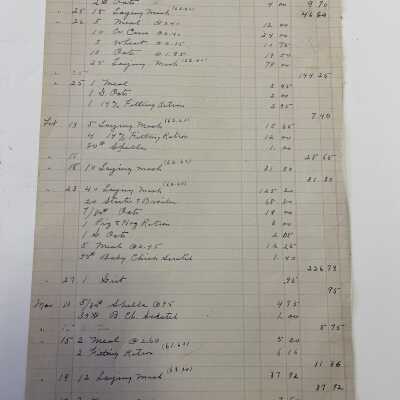 20 Oats 4 00 9 70
" 25 15 Laying Mash (62.60) 46 80
" 26 5 Meal @2.40 12 00
10 W Corn @2.40 24 00
5 Wheat @2.15 10 75
10 Oats 19 50
25 Laying Mash 78 00
144 25
" 25 1 Meal 2 45
1 G. Oats 2 00
1 14% Fitting Ration 2 95
7 40
Feb 13 5 Laying Mash (62.60) 15 65
4 14% Fitting Ration 12 00
50# Shells 1 00
28 65
" 18 10 Laying Mash 31 30
31 30
" 23 40 Laying Mash (62.60) 125 20
20 Starter & Broiler 68 80
Oats 18 00
1 Pig & Hog Ration 3 00
1 G. Oats 2 05
5 Meal @2.45 12 25
Baby Chick Scratch
226 73
" 27 1 Grit .95
95
Mar 10 Shells @95 4 75
B. Ch. Scratch 1 00
5 75
" 15 2 Meal @2.60 5 20
2 Fitting Ration (61.60) 6 16
11 36
" 19 12 Laying Mash (63.20) 37 92
37 92